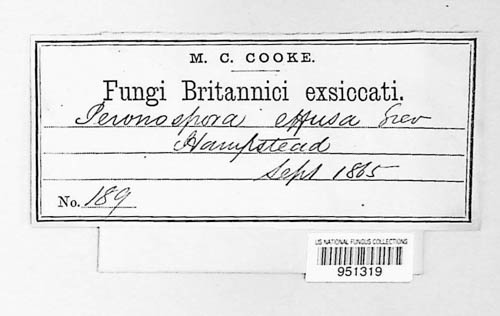 M. C. COOKE.
Fungi Britannici exsiccati.
Peronospora effusa Grev
Hampstead
Sept 1865
No. 189
US NATIONAL FUNGUS COLLECTIONS
951319